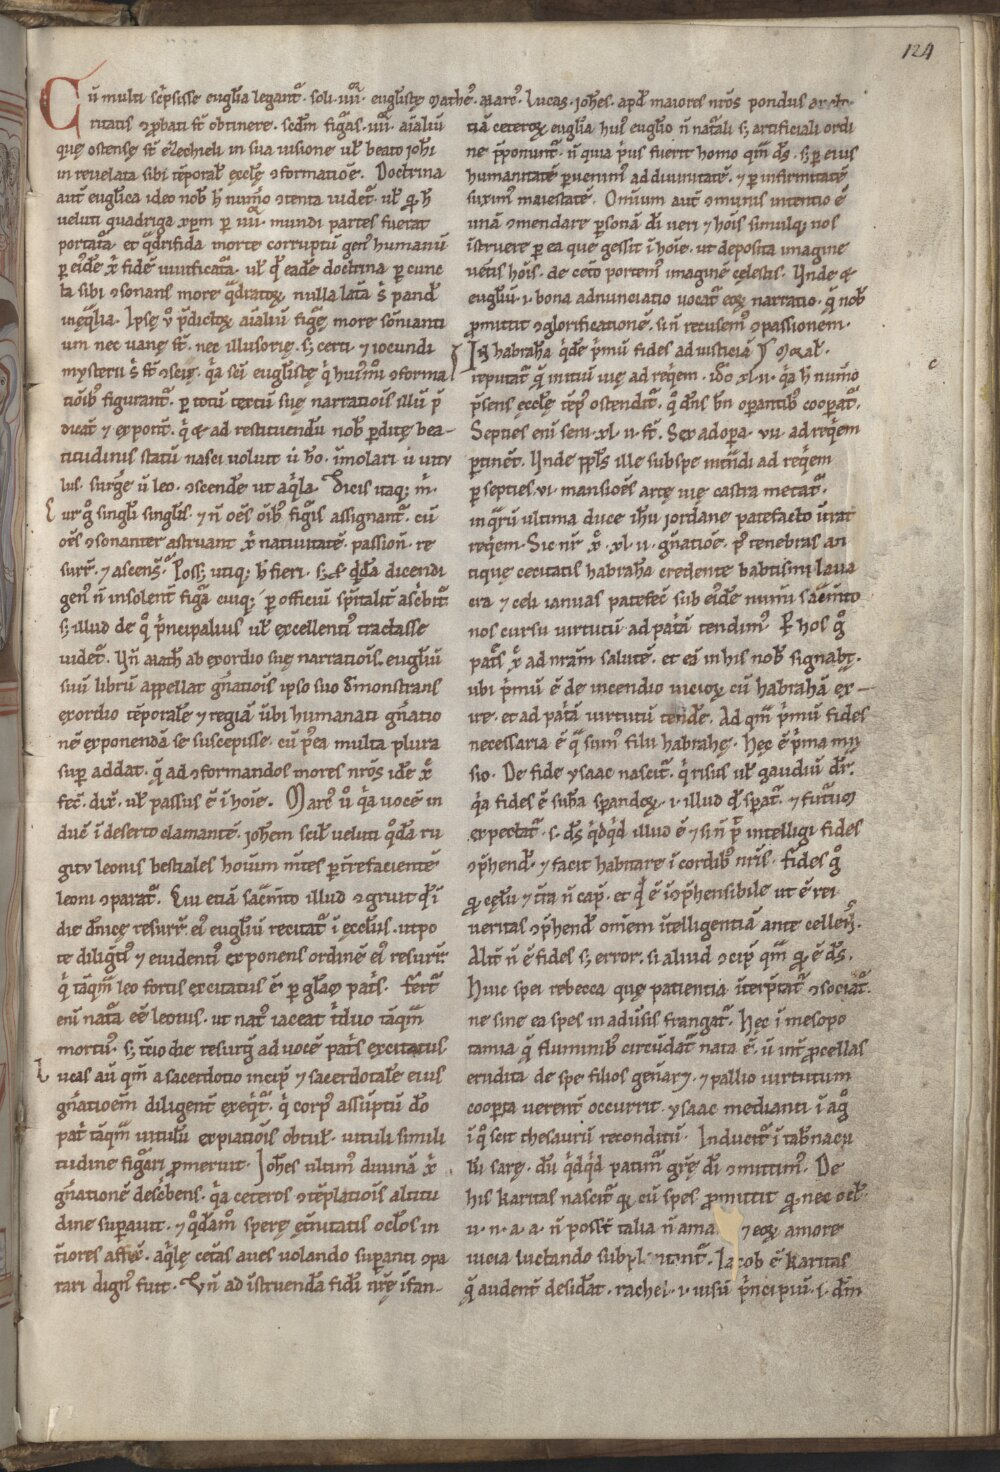 124
Cū multi sc̄psisse eugl̄ia legant᷑. soli .iiii. eugl̄istę Mathe᷒. Marc᷒. Lucas. Joh̄es. apd̄ maiores nr̄os pondus
ritatis ꝓbati st̄ obtinere. sc̄dm figuras .iiii. aīaliū
quę ostensę st̄ ezechieli in sua uisione ul̄ beato joh̄i
in reuelata sibi tēporal̄ ęcclę ↄformatiōe. Doctrina
aut̄ eugl̄ica ideo nob̄ h̄ num̄o ↄtenta uidet᷑. ul̄ qa h̄
ueluti quadriga xpm̄ ꝑ .iiii. mundi partes fuerat
portat̄a. et q̄drifida morte corruptū gen᷒ humanū
ꝑ eīdē x̄ fidē uiuificat̄a. ul̄ qd̄ eadē doctrina ꝑ cunc
ta sibi ↄsonans more q̄dratoꝝ nulla lat̄a
inęq̄lia. Ipsę ū p̄dictoꝝ aīaliū figurę more somianti
um nec uanę st̄. nec illusorię. sꝫ certi ⁊ iocundi
mysterii s̄t ↄscię. qa sc̄i eugl̄istę
tiōib᷒ figurant᷑. ꝑ totū textū suę narratiōis illū p̄
dicāt ⁊ exponūt. qi ad restituendū nob̄ ꝑditę bea-
titudinis statū nasci uoluit ū ho. īmolari ū uitu
lus. surgere ū leo. ↄscendē ut aq̄la. Dicis itaqꝫ m̄.
Cur g̊ singl̄i singl̄is. ⁊ n̄ oēs oīb᷒ figuris assignant᷑. cū
oēs ↄsonanter astruant x̄ natiuitatē. passion̄. re
surr̄. ⁊ ascens̄. Possꝫ utiqꝫ h̄ fieri. sꝫ q̄dā dicendi
gen᷒ n̄ insolent̄ figurā cuiqꝫ ꝑ officiū sp̄italit̄ ascbit᷑
sꝫ illud de q̊ p̄ncipalius ul̄ excellenti᷒ tractasse
uidet᷑. Un̄ Math̄ ab exordio suę narratiōis. eugl̄iū
suū librū appellat gn̄atiōis ipso suo demonstrans
exordio tēporalē ⁊ regiā ūbi humanati gn̄atio
nē exponendā se suscepisse. cū p̄ea multa plura
suꝑ addat. q̄ ad ↄformandos mores nr̄os idē x̄
fec̄. dix̄. ul̄ passus ē ī hoīe. Marc᷒ ū qa uocē in
ducē ī deserto clamantē. joh̄em scil̄ ueluti q̊dā ru
gitu leonis bestiales hoīum mētes ꝑt̄refacientē
leoni ↄparat᷑. Cui etiā sac̄mto illud ↄgruit qd̄ ī
die dn̄icę resurr̄. ei᷒ eugl̄iū recitat᷑ ī ęccl̄iis. utpo
te diligēti᷒ ⁊ euidenti᷒ exponens ordinē ei᷒ resurr̄.
qi tāqm̄ leo fortis excitatus ē ꝑ gl̄am pat̄s. fert᷑
eni nat̄a eē leonis. ut nat᷒ iaceat t̄duo tāqm̄
mortu᷒. sꝫ t̄cio die resurgat ad uocē pat̄s excitatus
Lucas aū qm̄ a sacerdotio incip̄ ⁊ sacerdotalē eius
gn̄atioem diligent̄ exeqt᷑. qi corp᷒ assūptū do
pat̄ tāqm̄ uitulū expiatiōis obtul̄. uituli simili
tudine figurari ꝓmeruit. Joh̄es ultim᷒ diuinā x̄
gn̄ationē describens. qa ceteros ↄtēplatiōis altitu
dine suꝑauit. ⁊ q̊dām̄ sperę ęt̄nitatis ocl̄os in
t̄iores affix̄. aq̄lę cet̄as aues uolando suꝑanti ↄpa
rari dign᷒ fuit. Un̄ ad īstruendā fidē nr̄ę īfan-
tiā ceteroꝝ eugl̄ia hui᷒ eugl̄io n̄ nat̄ali sꝫ artificiali ordi
ne p̄ponunt᷑. n̄ quia p̄us fuerit homo qm̄ ds̄. sꝫ ꝑ eius
humanitatē ꝑuenim᷒ ad diuinitatē. ⁊ ꝑ infirmitatē
maiestatē. Omīum aut̄ ↄmunis intentio ē
unā ↄmendare ꝑsonā dī ueri ⁊ hoīs simulqꝫ nos
īstruere ꝑ ea quę gessit ī hoīe. ut deposita imagine
uet̄is hoīs. de cet̄o portem᷒ imaginē cęlestis. Unde ⁊
eugl̄iū .i. bona adnunciatio uocat᷑ eoꝝ narratio. q̄ nob̄
ꝓmittit ↄglorificationē. si n̄ recusem᷒ ↄpassionem.
In habrahā qdē p̄mū fides ad iusticiā Moral̄.
reputat᷑ q̄ initiū uię ad reqem. Ido .xl.ii. qa h̄ num̄o
p̄sens ęccl̄ę tēp᷒ ostendit᷑. q̊ dn̄s bn̄ oꝑantib᷒ cooꝑat᷑.
Septies eni seni .xl.ii. st̄. Sex ad oꝑa. vii. ad reqem
ꝑtinēt. Unde ppl̄s ille sub spe intndi ad reqem
ꝑ septies .vi. mansiōes artę uię castra metat᷑.
inqrū ultima duce ih̄u jordane patefacto intrat
reqem. Sic nr̄ x̄ .xl.ii. gn̄atiōe. p᷒ tenebras an
tique cecitatis habrahā credente babtismi laua
cra ⁊ celi ianuas patefec̄ sub eīdē num̄i sac̄mto
nos cursu uirtutū ad pat̄iā tendim᷒. P hos g̊
pat̄s x̄ ad nram salutē. et eā in his nob̄ signabt.
ubi p̄mū ē de incendio uicioꝝ cū habrahā ex-
ire. et ad pat̄iā uirtutū tendē. Ad qm̄ p̄mū fides
necessaria ē q̄ sum᷒ filii habrahę. Hęc ē p̄ma m̄
sio. De fide ysaac nascit᷑. qi risus ul̄ gaudiū dr̄.
qa fides ē subā sꝑandoꝝ. .i. illud qd̄ sꝑat᷑. ⁊ fut̄um
expectat᷑. s. ds̄ qdqd illud ē ⁊ si n̄ p̄t intelligi fides
ↄp̄hend̄. ⁊ facit habitare ī cordib᷒ nr̄is. fides g̊
qm cęlū ⁊ t̄ra n̄ cap̄. et qd̄ ē īↄp̄hensibile ut ē rei
ueritas ↄp̄hend̄ om̄em ītelligentiā ante cellen̄.
Alit̄ n̄ ē fides sꝫ error. si aliud ↄcip̄ qm̄ qd ē ds̄.
Huic spei rebecca quę patientia īterp̄tat᷑ ↄsociat᷑.
ne sine ea spes in adūsis frangat᷑. Hęc ī mesopo
tamia q̄ fluminib᷒ circūdat᷑ nata ē. ū int̄ ꝓcellas
erudita de spe filios gen̄are. ⁊ pallio uirtutum
cooꝑta uerent̄ occurrit. ysaac medianti ī agro
ī q̊ scit thesaurū reconditū. Inducit᷑ ī tab̄nacu
lū sarę. dū qdqd patim᷒ gr̄ę dī ↄmittim᷒. De
his karitas nascit᷑ qa cū spes ꝓmittit qd nec ocl̄.
u. n. a. a. n̄ possēt talia n̄ ama ⁊ eoꝝ amore
uicia luctando Jacob ē karitas
q̄ audent̄ desiderat. rachel .i. uisū p̄ncipiū .i. dm̄
c